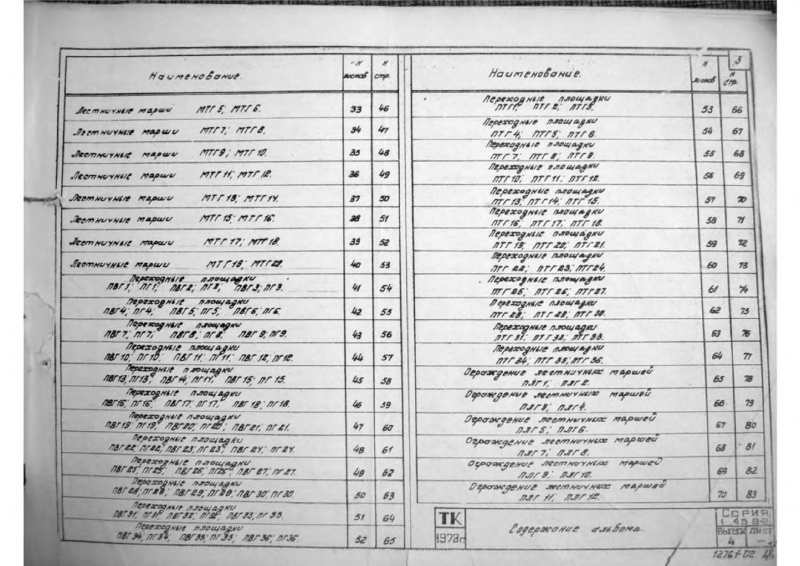 3
Наименование
N листов
N стр.
Лестничные марши МТГ 5; МТГ 6. 33 46
Лестничные марши МТГ 7; МТГ 8. 34 47
Лестничные марши МТГ 9; МТГ 10. 35 48
Лестничные марши МТГ 11; МТГ 12. 36 49
Лестничные марши МТГ 13; МТГ 14. 37 50
Лестничные марши МТГ 15; МТГ 16. 38 51
Лестничные марши МТГ 17; МТГ 18. 39 52
Лестничные марши МТГ 19; МТГ 20. 40 53
Переходные площадки
ПВГ1; ПГ1; ПВГ2; ПГ2; ПВГ3; ПГ3. 41 54
Переходные площадки
ПВГ4; ПГ4; ПВГ5; ПГ5; ПВГ6; ПГ6. 42 55
Переходные площадки
ПВГ7; ПГ7; ПВГ8; ПГ8; ПВГ9; ПГ9. 43 56
Переходные площадки
ПВГ10; ПГ10; ПВГ11; ПГ11; ПВГ12; ПГ12. 44 57
Переходные площадки
ПВГ13; ПГ13; ПВГ14; ПГ14; ПВГ15; ПГ15. 45 58
Переходные площадки
ПВГ16; ПГ16; ПВГ17; ПГ17; ПВГ18; ПГ18. 46 59
Переходные площадки
ПВГ19; ПГ19; ПВГ20; ПГ20; ПВГ21; ПГ21. 47 60
Переходные площадки
ПВГ22; ПГ22; ПВГ23; ПГ23; ПВГ24; ПГ24. 48 61
Переходные площадки
ПВГ25; ПГ25; ПВГ26; ПГ26; ПВГ27; ПГ27. 49 62
Переходные площадки
ПВГ28; ПГ28; ПВГ29; ПГ29; ПВГ30; ПГ30. 50 63
Переходные площадки
ПВГ31; ПГ31; ПВГ32; ПГ32; ПВГ33; ПГ33. 51 64
Переходные площадки
ПВГ34; ПГ34; ПВГ35; ПГ35; ПВГ36; ПГ36 52 65
Наименование.
N листов
N стр.
Переходные площадки
ПТГ1; ПТГ2; ПТГ3. 53 66
Переходные площадки
ПТГ 4; ПТГ 5; ПТГ 6. 54 67
Переходные площадки
ПТГ 7; ПТГ 8; ПТГ 9. 55 68
Переходные площадки
ПТГ 10; ПТГ 11; ПТГ 12. 56 69
Переходные площадки
ПТГ 13; ПТГ 14; ПТГ 15. 57 70
Переходные площадки
ПТГ 16; ПТГ 17; ПТГ 18. 58 71
Переходные площадки
ПТГ 19; ПТГ 20; ПТГ 21. 59 72
Переходные площадки
ПТГ 22; ПТГ 23; ПТГ 24. 60 73
Переходные площадки
ПТГ 25; ПТГ 26; ПТГ 27. 61 74
Переходные площадки
ПТГ 28; ПТГ 29; ПТГ 30. 62 75
Переходные площадки
ПТГ 31; ПТГ 32; ПТГ 33. 63 76
Переходные площадки
ПТГ 34; ПТГ 35; ПТГ 36. 64 77
Ограждение лестничных маршей
ПЛГ 1; ПЛГ 2. 65 78
Ограждение лестничных маршей
ПЛГ 3; ПЛГ 4. 66 79
Ограждение лестничных маршей
ПЛГ 5; ПЛГ 6. 67 80
Ограждение лестничных маршей
ПЛГ 7; ПЛГ 8. 68 81
Ограждение лестничных маршей
ПЛГ 9; ПЛГ 10. 69 82
Ограждение лестничных маршей
ПЛГ 11; ПЛГ 12. 70 83
ТК
1973г.
Содержание альбома
Серия
Выпуск 4
Лист —